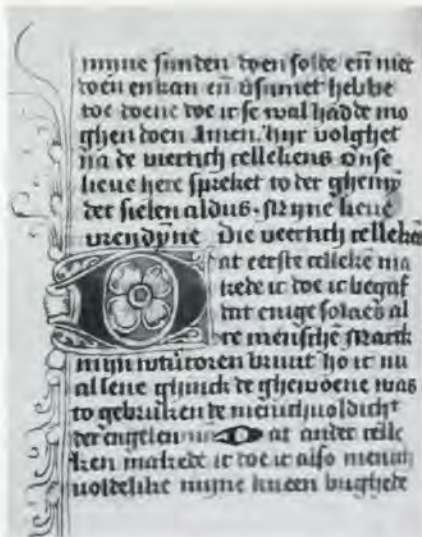 myne sunden doen solde en̄ niet
doen en kan en̄ v̄sumet hebbe
toe doene doe ic se wal hadde mo
ghen doen Amen. hyr volghet
na de viertich cellekens Onse
lieue here spreket to der ghenr
der sielen aldus. Myne lieue
vrendȳne Die veertich celleken̄
Dat eerste cellekē ma
kede ic doe ic begaf
dat enige solaes al
re menschē Marck
myn wtūcoren bruut ho ic nu
allene ghinck de ghewoene was
to gebruken de menichuoldicht
der engelen Dat ander celle
ken makede ic doe ic also menich
uoldelike myne kneen bughede